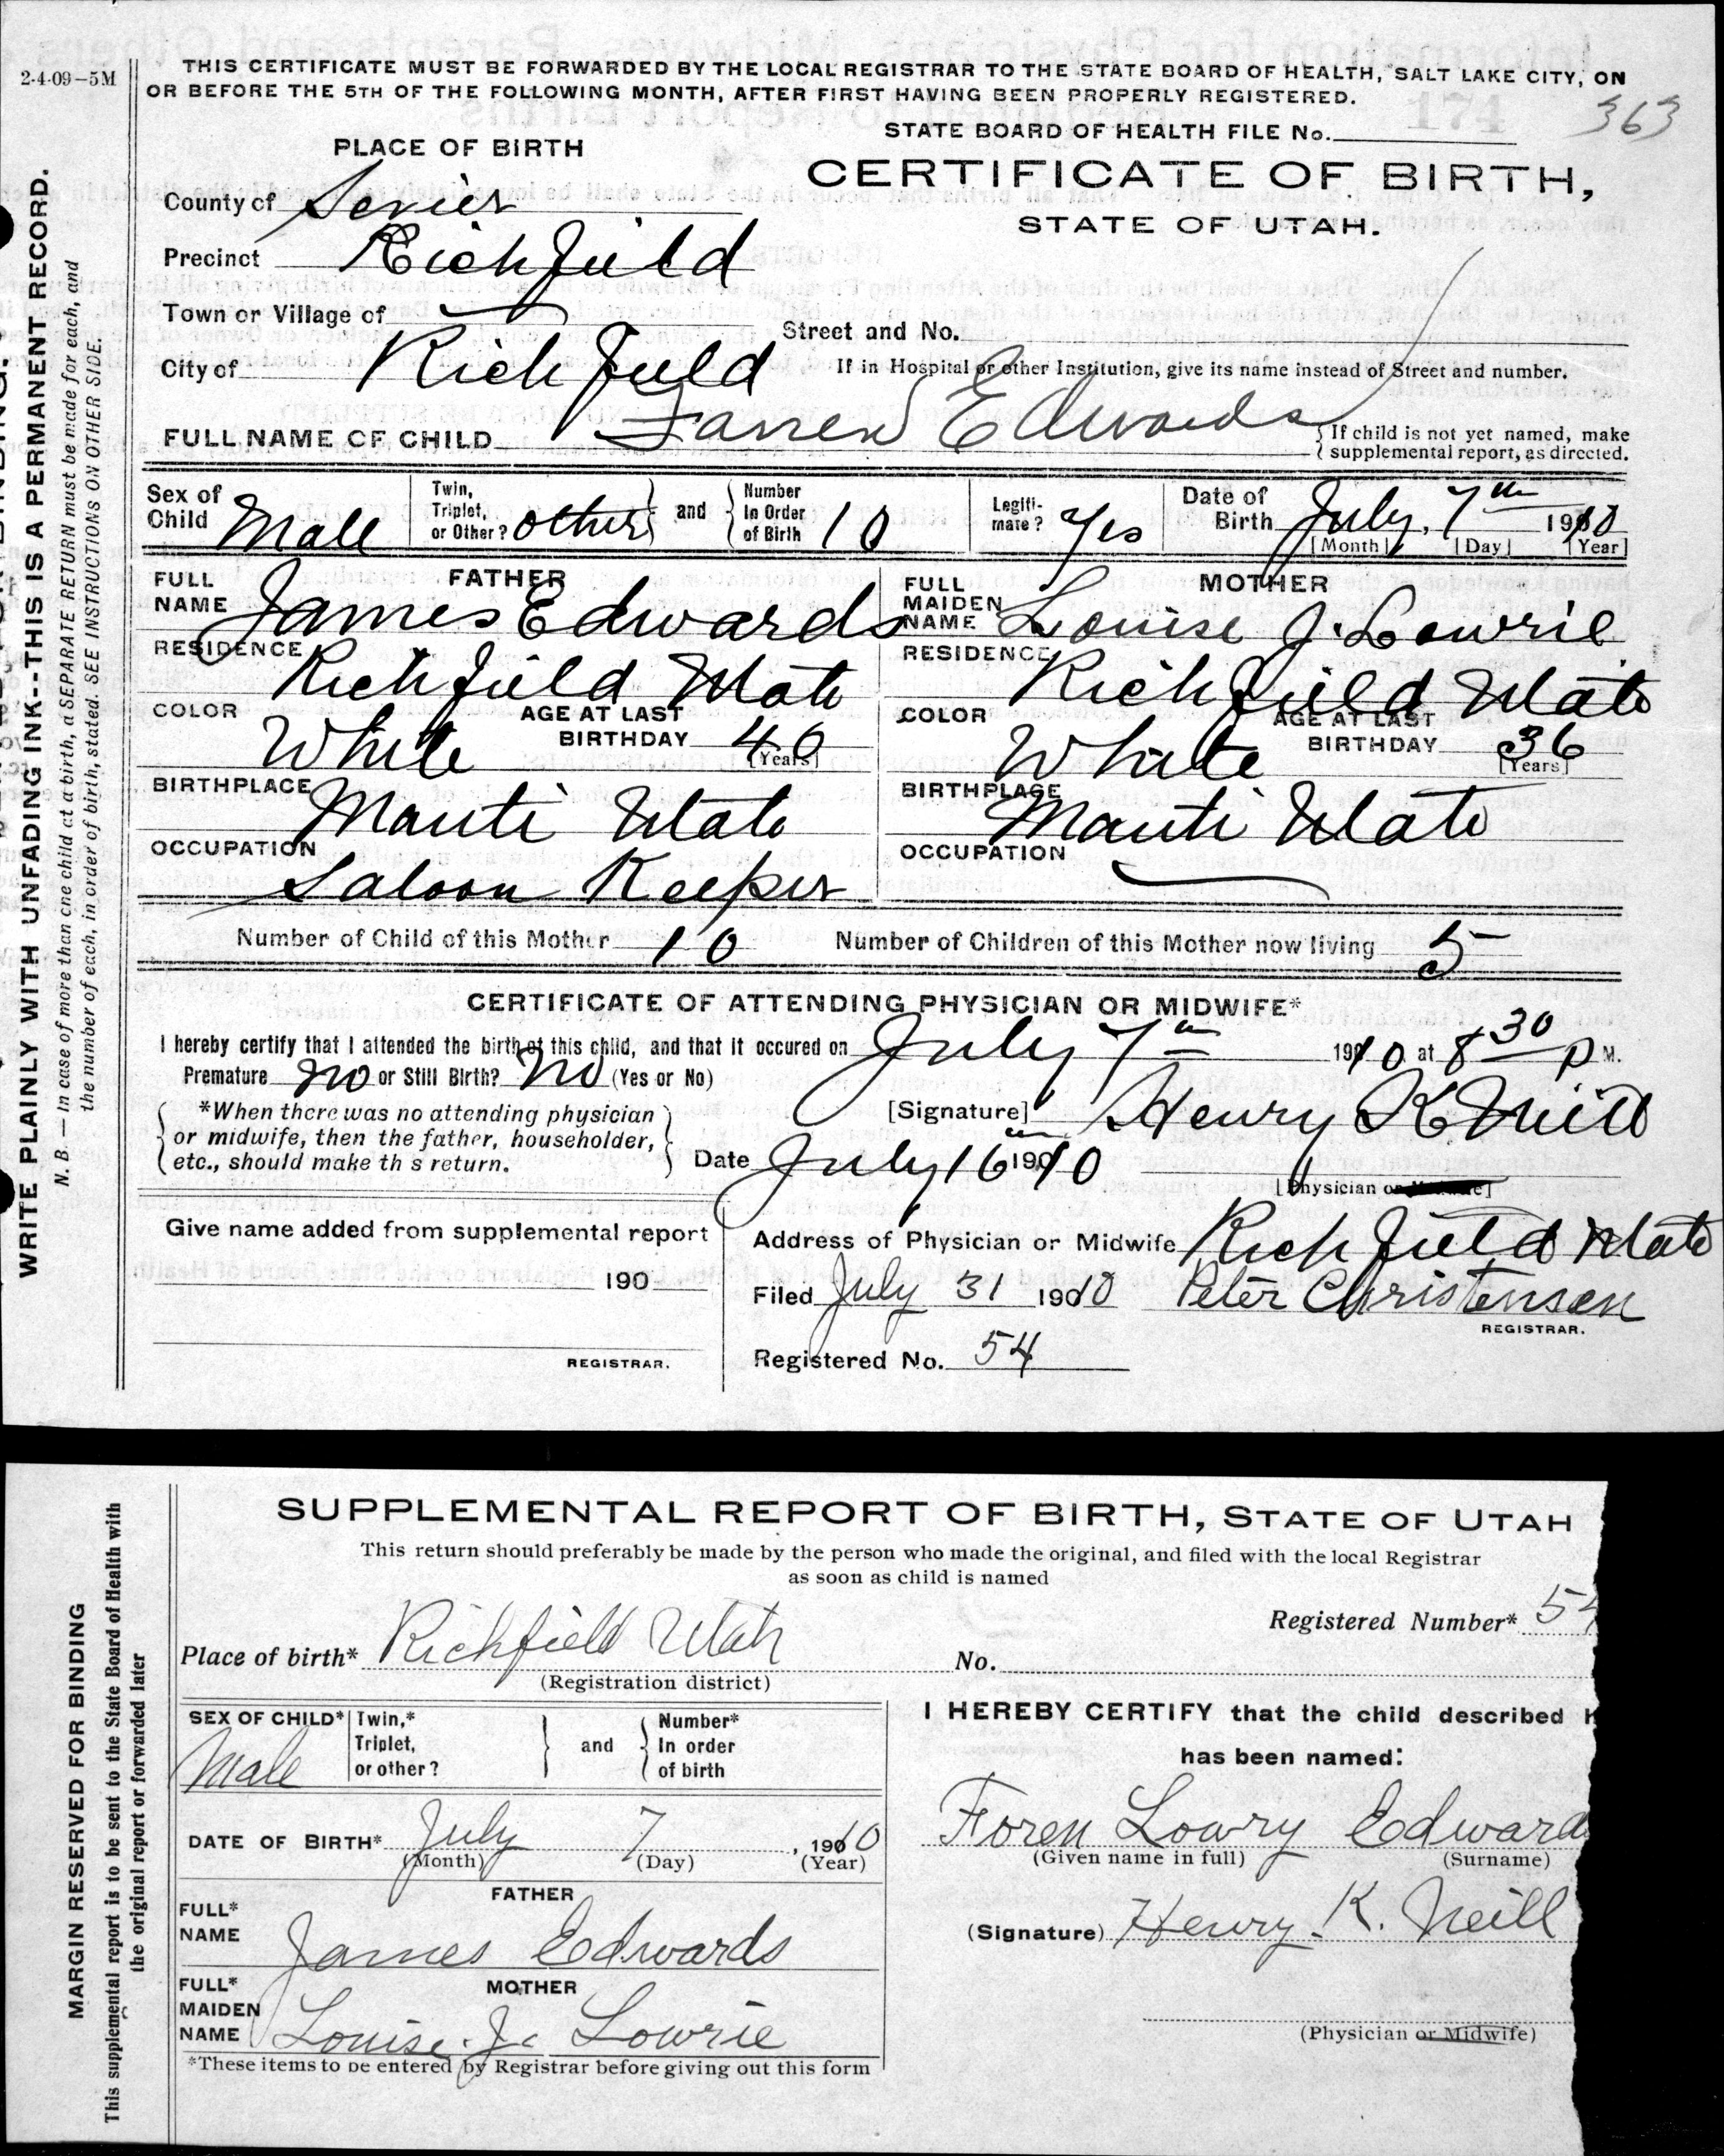 2-4-09–5M
THIS CERTIFICATE MUST BE FORWARDED BY THE LOCAL REGISTRAR TO THE STATE BOARD OF HEALTH, SALT LAKE CITY, ON
OR BEFORE THE 5TH OF THE FOLLOWING MONTH, AFTER FIRST HAVING BEEN PROPERLY REGISTERED.
174 363
STATE BOARD OF HEALTH FILE No.
PLACE OF BIRTH
CERTIFICATE OF BIRTH,
STATE OF UTAH.
County of Sevier
Precinct Richfield
Town or Village of
Street and No.
City of Richfield
If in Hospital or other Institution, give its name instead of Street and number.
FULL NAME OF CHILD Edwards
If child is not yet named, make
supplemental report, as directed.
Sex of Child Male
Twin, Triplet, or Other? other and Number In Order of Birth 10
Legitimate? Yes
Date of Birth July, 7th 1910
[Month] [Day] [Year]
FATHER
FULL NAME James Edwards
RESIDENCE Richfield Utah
COLOR White AGE AT LAST BIRTHDAY 46 [Years]
BIRTHPLACE Manti Utah
OCCUPATION Saloon Keeper
MOTHER
FULL MAIDEN NAME Louise J. Lowrie
RESIDENCE Richfield Utah
COLOR White AGE AT LAST BIRTHDAY 36 [Years]
BIRTHPLACE Manti Utah
OCCUPATION
Number of Child of this Mother 10 Number of Children of this Mother now living 5
CERTIFICATE OF ATTENDING PHYSICIAN OR MIDWIFE*
I hereby certify that I attended the birth of this child, and that it occured on July 7th 1910 at 8 30 P M.
Premature No or Still Birth? No (Yes or No)
*When there was no attending physician
or midwife, then the father, householder,
etc., should make th s return.
[Signature] Henry K Neill
Date July 16th 1910
[Physician or Midwife]
Give name added from supplemental report
190
REGISTRAR.
Address of Physician or Midwife Richfield Utah
Filed July 31 1910 Peter Christensen
REGISTRAR.
Registered No. 54
WRITE PLAINLY WITH UNFADING INK--THIS IS A PERMANENT RECORD.
N. B. — In case of more than one child at a birth, a SEPARATE RETURN must be made for each, and
the number of each, in order of birth, stated. SEE INSTRUCTIONS ON OTHER SIDE.
SUPPLEMENTAL REPORT OF BIRTH, STATE OF UTAH
This return should preferably be made by the person who made the original, and filed with the local Registrar
as soon as child is named
Registered Number* 54
Place of birth* Richfield Utah No.
(Registration district)
SEX OF CHILD* Male
Twin,* Triplet, or other? and Number* In order of birth
DATE OF BIRTH* July 7, 1910
(Month) (Day) (Year)
FATHER
FULL* NAME James Edwards
MOTHER
FULL* MAIDEN NAME Louise J. Lowrie
*These items to be entered by Registrar before giving out this form
I HEREBY CERTIFY that the child described h
has been named:
Foren Lowry Edward
(Given name in full) (Surname)
(Signature) Henry K. Neill
(Physician or Midwife)
MARGIN RESERVED FOR BINDING
This supplemental report is to be sent to the State Board of Health with
the original report or forwarded later